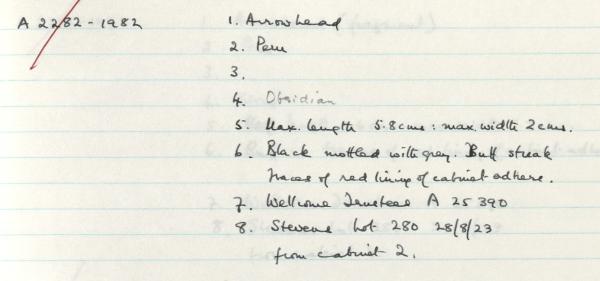 A 2282-1982
1. Arrowhead
2. Peru
3.
4. Obsidian
5. Max. length 5.8cms: max. width 2cms.
6. Black mottled with grey. Buff streak
Traces of red lining of cabinet adhere.
7. Wellcome Trustees A 25390
8. Stevens Lot 280 28/8/23
from cabinet 2.